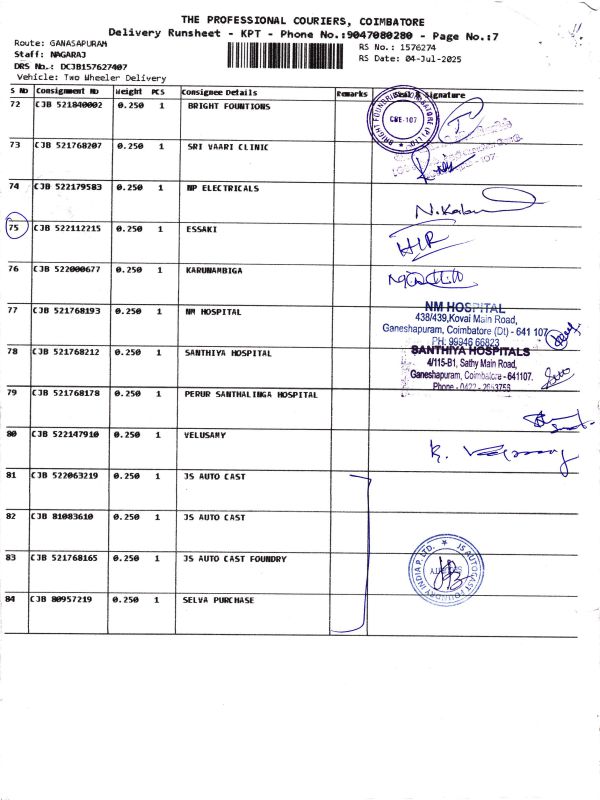 THE PROFESSIONAL COURIERS, COIMBATORE
Delivery Runsheet - KPT - Phone No.:9047080280 - Page No.:7
Route: GANASAPURAM
RS No.: 1576274
Staff: NAGARAJ
RS Date: 04-Jul-2025
DRS No.: DCJB157627407
Vehicle: Two Wheeler Delivery
S No Consignment No Weight PCS Consignee Details Remarks Seal & Signature
72 CJB 521840002 0.250 1 BRIGHT FOUNTIONS
CBE-107
73 CJB 521768207 0.250 1 SRI VAARI CLINIC
74 CJB 522179583 0.250 1 NP ELECTRICALS
75 CJB 522112215 0.250 1 ESSAKI
76 CJB 522000677 0.250 1 KARUNAMBIGA
77 CJB 521768193 0.250 1 NM HOSPITAL
NM HOSPITAL
438/439,Kovai Main Road,
Ganeshapuram, Coimbatore (Dt) - 641 107
PH: 99946 66823
78 CJB 521768212 0.250 1 SANTHIYA HOSPITAL
SANTHIYA HOSPITALS
4/115-B1, Sathy Main Road,
Ganeshapuram, Coimbatore - 641107.
Phone - 0422 - 2653756
79 CJB 521768178 0.250 1 PERUR SANTHALINGA HOSPITAL
80 CJB 522147910 0.250 1 VELUSAMY
81 CJB 522063219 0.250 1 JS AUTO CAST
82 CJB 81083610 0.250 1 JS AUTO CAST
83 CJB 521768165 0.250 1 JS AUTO CAST FOUNDRY
JS AUTOCAST FOUNDRY INDIA P. LTD.
84 CJB 80957219 0.250 1 SELVA PURCHASE